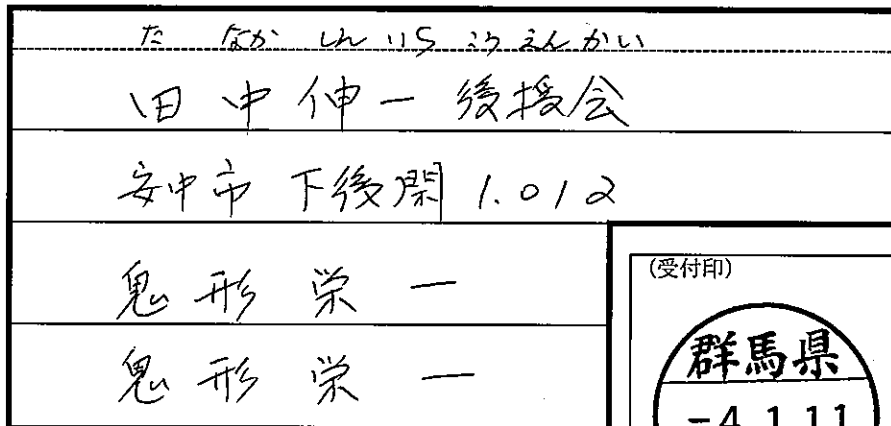 たなかしんいちこうえんかい
田中伸一後援会
安中市下後閑1.012
鬼形栄一
鬼形栄一
(受付印)
群馬県
-4.1.11